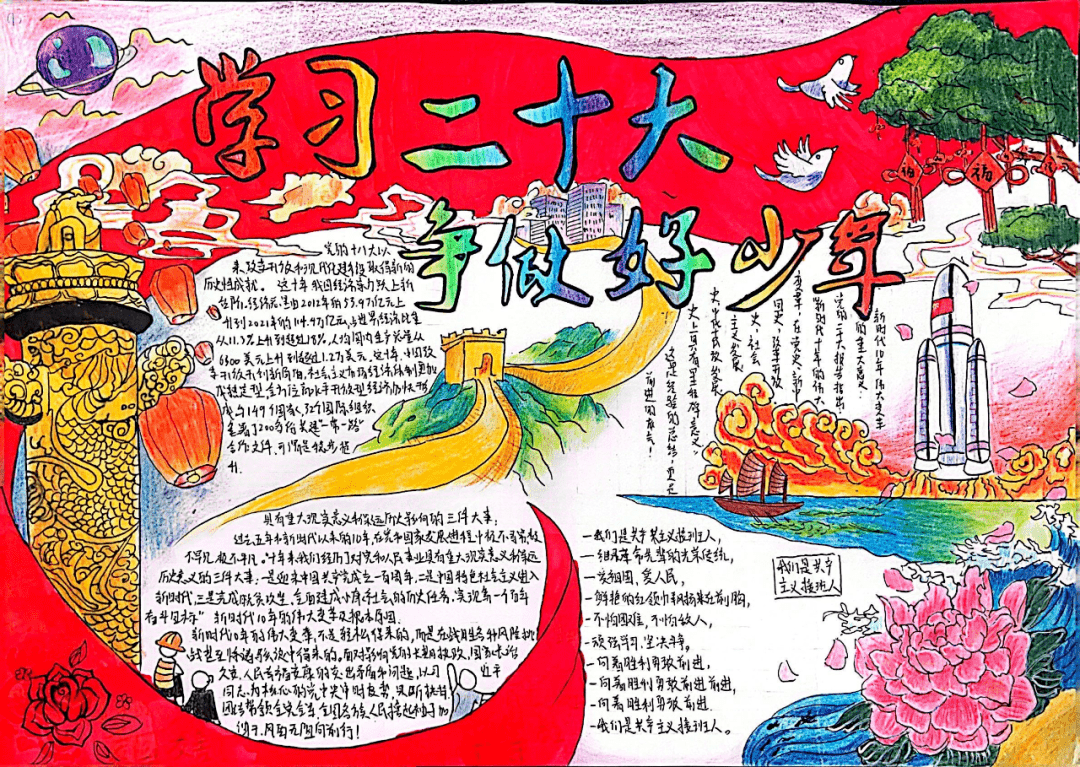 学习二十大
争做好少年
福
党的十八大以
来,改革开放和现代化建设取得新的
历史性成就。这十年,我国经济实力跃上新
台阶,经济总量由2012年的53.9万亿元上
升到2021年的114.9万亿元,占世界经济比重
从11.3%上升到超过18%,人均国内生产总值从
6300美元上升到超过1.2万美元。这十年,中国改
成与149个国家、32个国际组织
签署了200多份共建“一带一路”
合作文件,
新时代10年伟大变革
的重大意义:
党的二十大报告指出
新时代十年的伟大
变革,在党史、新中
国史、改革开放
史、社会
主义发展
史、中华民族发展
史上具有里程碑意义。
这是经验的总结,更是
前进的难点!
具有重大现实意义和深远历史影响的三件大事:
过去五年和新时代以来的10年,在党和国家发展进程中极不寻常、极
不平凡。十年来我们经历了对党和人民事业具有重大现实意义和深远
历史意义的三件大事:一是迎来中国共产党成立一百周年,二是中国特色社会主义进入
新时代,三是完成脱贫攻坚、全面建成小康社会的历史任务,实现第一个百年
奋斗目标”新时代10年的伟大变革及根本原因
新时代10年的伟大变革,不是轻松得来的,而是在战胜各种风险挑
近平
同志为核心的党中央
团结带领全党全军全国各族人民
-我们是共产主义接班人,
-继承革命先辈的光荣传统,
-爱祖国,爱人民,
-鲜艳的红领巾飘扬在前胸,
-不怕困难,不怕敌人,
-顽强学习,坚决斗争。
-向着胜利勇敢前进,
-向着胜利勇敢前进前进,
-向着胜利勇敢前进
-我们是共产主义接班人。
我们是共产
主义接班人